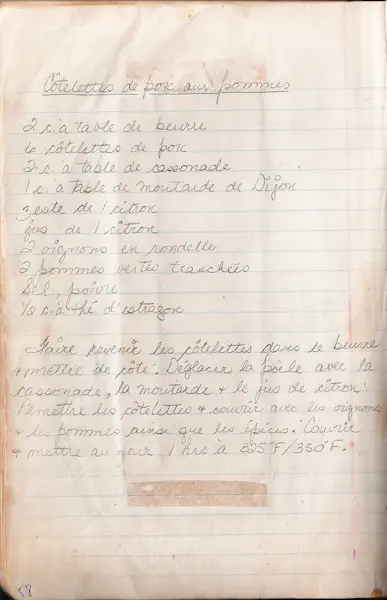 Côtelettes de porc aux pommes
2 c. à table de beurre
6 côtelettes de porc
2 c. à table de cassonade
1 c. à table de moutarde de Dijon
zeste de 1 citron
jus de 1 citron
2 oignons en rondelle
2 pommes vertes tranchées
sel, poivre
1/2 c. à thé d'estragon
Faire revenir les côtelettes dans le beurre
+ mettre de côté. Déglacer la poêle avec la
cassonade, la moutarde + le jus de citron.
Remettre les côtelettes + couvrir avec les oignons
+ les pommes ainsi que les épices. Couvrir
+ mettre au four 1 hrs à 325°F/350°F.
58